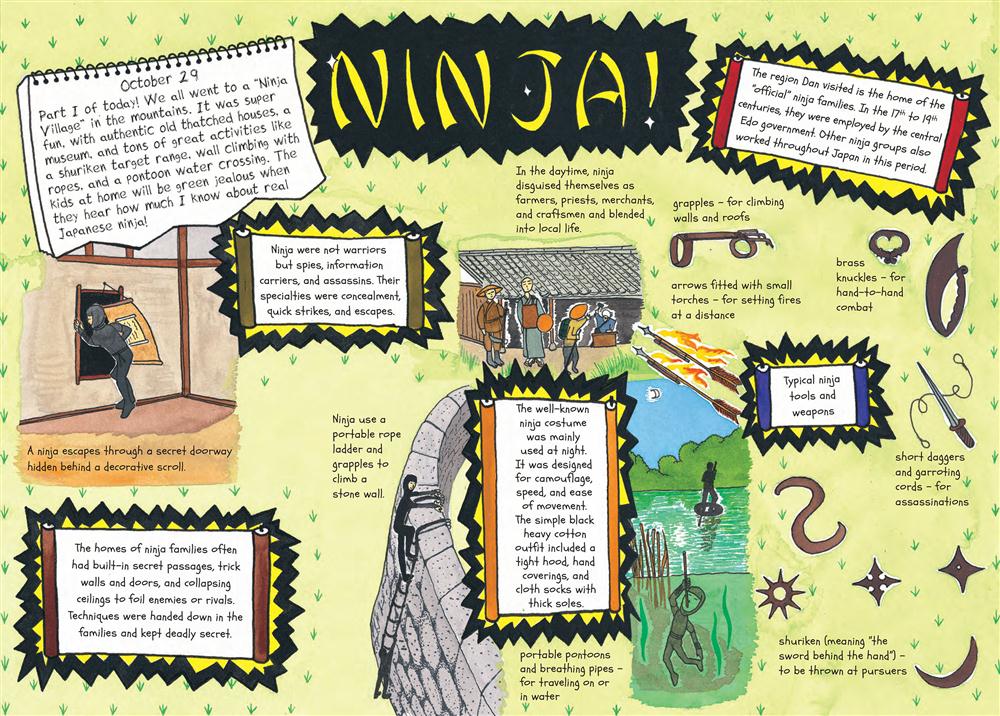 NINJA!
October 29
Part I of today! We all went to a "Ninja
Village" in the mountains. It was super
fun, with authentic old thatched houses, a
museum, and tons of great activities like
a shuriken target range, wall climbing with
ropes, and a pontoon water crossing. The
kids at home will be green jealous when
they hear how much I know about real
Japanese ninja!
The region Dan visited is the home of the
"official" ninja families. In the 17th to 19th
centuries, they were employed by the central
Edo government. Other ninja groups also
worked throughout Japan in this period.
Ninja were not warriors
but spies, information
carriers, and assassins. Their
specialties were concealment,
quick strikes, and escapes.
In the daytime, ninja
disguised themselves as
farmers, priests, merchants,
and craftsmen and blended
into local life.
grapples – for climbing
walls and roofs
arrows fitted with small
torches – for setting fires
at a distance
brass
knuckles – for
hand-to-hand
combat
Typical ninja
tools and
weapons
short daggers
and garroting
cords – for
assassinations
A ninja escapes through a secret doorway
hidden behind a decorative scroll.
Ninja use a
portable rope
ladder and
grapples to
climb a
stone wall.
The well-known
ninja costume
was mainly
used at night.
It was designed
for camouflage,
speed, and ease
of movement.
The simple black
heavy cotton
outfit included a
tight hood, hand
coverings, and
cloth socks with
thick soles.
The homes of ninja families often
had built-in secret passages, trick
walls and doors, and collapsing
ceilings to foil enemies or rivals.
Techniques were handed down in the
families and kept deadly secret.
portable pontoons
and breathing pipes –
for traveling on or
in water
shuriken (meaning "the
sword behind the hand") –
to be thrown at pursuers